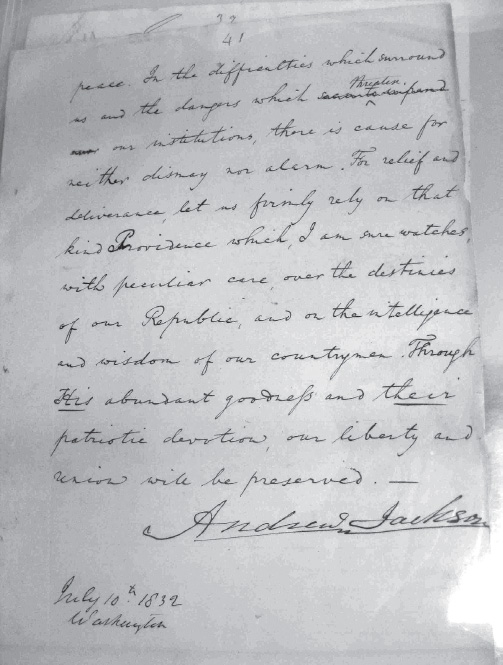 32
41
peace. In the difficulties which surround
threaten
us and the dangers which
our institutions, there is cause for
neither dismay nor alarm. For relief and
deliverance, let us firmly rely on that
kind Providence which, I am sure watches,
with peculiar care, over the destinies
of our Republic, and on the intelligence
and wisdom of our countrymen. Through
His abundant goodness and their
patriotic devotion, our liberty and
union will be preserved. —
Andrew Jackson
July 10th 1832
Washington